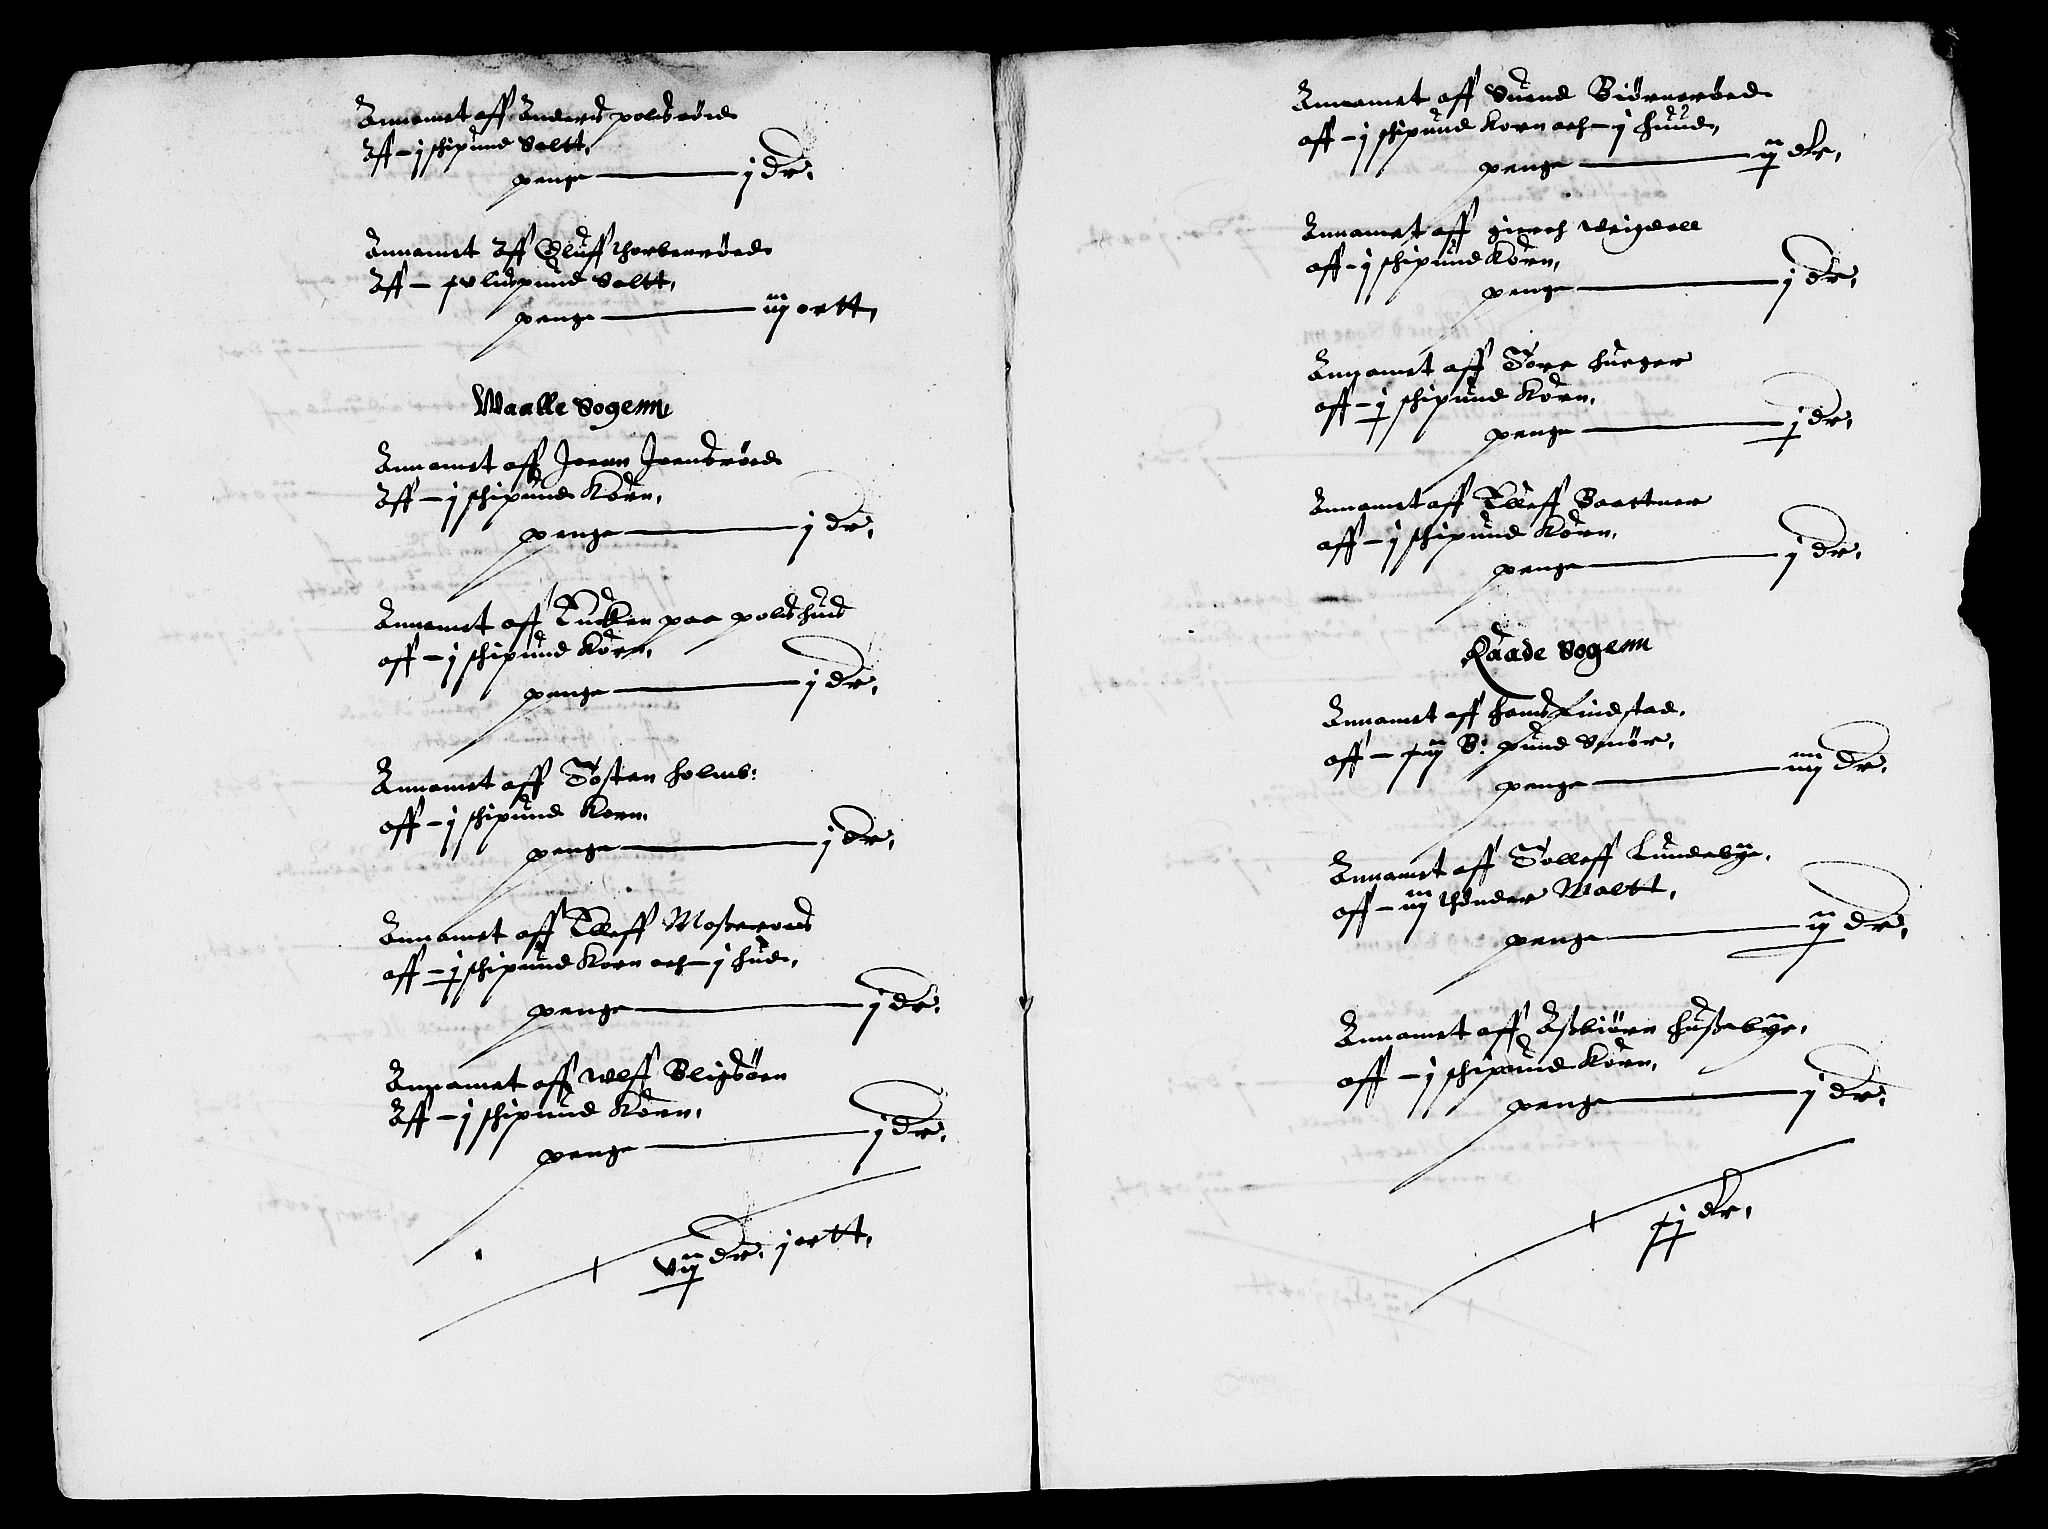 Annamet aff Anders poldsröed
Aff – j schipund Saltt,
penge — j dr,
Annamet Aff Oluff thorbenröed
Aff – xv lispund Saltt,
penge — iij ortt,
Waalle Sogenn
Annamet aff Joenn Joensröed
Aff – j schipund Korn,
penge — j dr,
Annamet aff paa poldshues
aff – j schipund Korn,
penge — j dr,
Annamet aff Tosten holmb:
aff – j schipund Korn,
penge — j dr,
Annamet aff Elleff Moßeroed
aff – j schipund Korn och – j hud,
penge — j dr,
Annamet aff Wlff Bligsöen
Aff – j schipund Korn,
penge — j dr,
vij dr, j ortt,
Annamet aff Suend Biörneröed
aff – j schipund Korn och – j huud,
penge — ij dr,
Annamet aff Weigdall
aff – j schipund Korn,
penge — j dr,
Annamet aff Tore hueger
aff – j schipund Korn,
penge — j dr,
Annamet aff Elleff Baattner
aff – j schipund Korn,
penge — j dr,
Raade Sogenn
Annamet aff hans Lindstad,
aff – xij B: pund Smör,
penge — iiij dr,
Annamet aff Tolleff Lundebÿe,
aff – iij thönder Maltt,
penge — ij dr,
Annamet aff Aßbiörn hußebÿe,
aff – j schipund Korn,
penge — j dr,
xj dr,